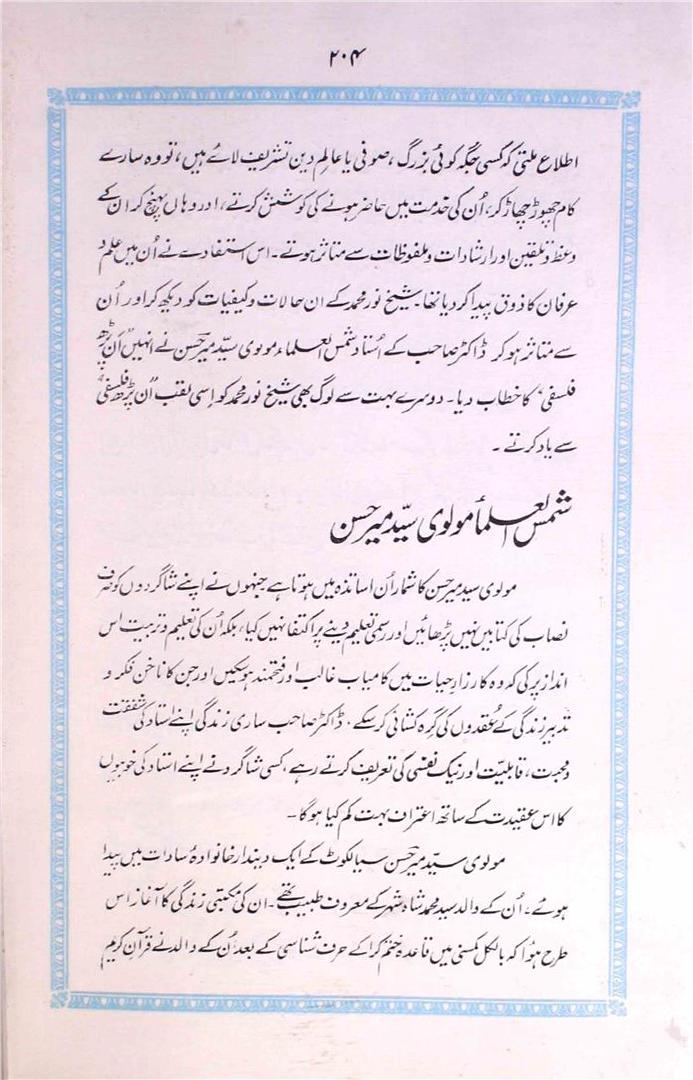 ۲۰۴
اطلاع ملتی کہ کسی جگہ کوئی بزرگ، صوفی یا عالمِ دین تشریف لائے ہیں، تو وہ سارے
کام چھوڑ چھاڑ کر، اُن کی خدمت میں حاضر ہونے کی کوشش کرتے، اور وہاں پہنچ کر ان کے
وعظ و تلقین اور ارشادات و ملفوظات سے متاثر ہوتے۔ اس استفادے نے اُن میں علم و
عرفان کا ذوق پیدا کر دیا تھا۔ شیخ نور محمد کے ان حالات و کیفیات کو دیکھ کر اور اُن
سے متاثر ہو کر ڈاکٹر صاحب کے اُستاد شمس العلماء مولوی سیّد میر حسن نے انہیں ”اَن پڑھ
فلسفی“ کا خطاب دیا۔ دوسرے بہت سے لوگ بھی شیخ نور محمد کو اِسی لقب ”اَن پڑھ فلسفی“
سے یاد کرتے ۔
شمس العلماء مولوی سیّد میر حسن
مولوی سید میر حسن کا شمار اُن اساتذہ میں ہوتا ہے جنہوں نے اپنے شاگردوں کو صرف
نصاب کی کتابیں نہیں پڑھائیں اور رسمی تعلیم دینے پر اکتفا نہیں کیا، بلکہ اُن کی تعلیم و تربیت اس
انداز پر کی کہ وہ کارزارِ حیات میں کامیاب غالب اور فتحمند ہو سکیں اور جن کا ناخنِ فکر و
تدبیر زندگی کے عُقدوں کی گرہ کشائی کر سکے۔ ڈاکٹر صاحب ساری زندگی اپنے استاد کی شفقت
و محبت، قابلیّت اور نیک نفسی کی تعریف کرتے رہے، کسی شاگرد نے اپنے استاد کی خوبیوں
کا اس عقیدت کے ساتھ اعتراف بہت کم کیا ہوگا۔
مولوی سیّد میر حسن سیالکوٹ کے ایک دیندار خانوادۂ سادات میں پیدا
ہوئے، اُن کے والد سید محمد شاہ شہر کے معروف طبیب تھے۔ ان کی مکتبی زندگی کا آغاز اس
طرح ہوُا کہ بالکل کمسنی میں قاعدہ ختم کرا کے حرف شناسی کے بعد اُن کے والد نے قرآنِ کریم